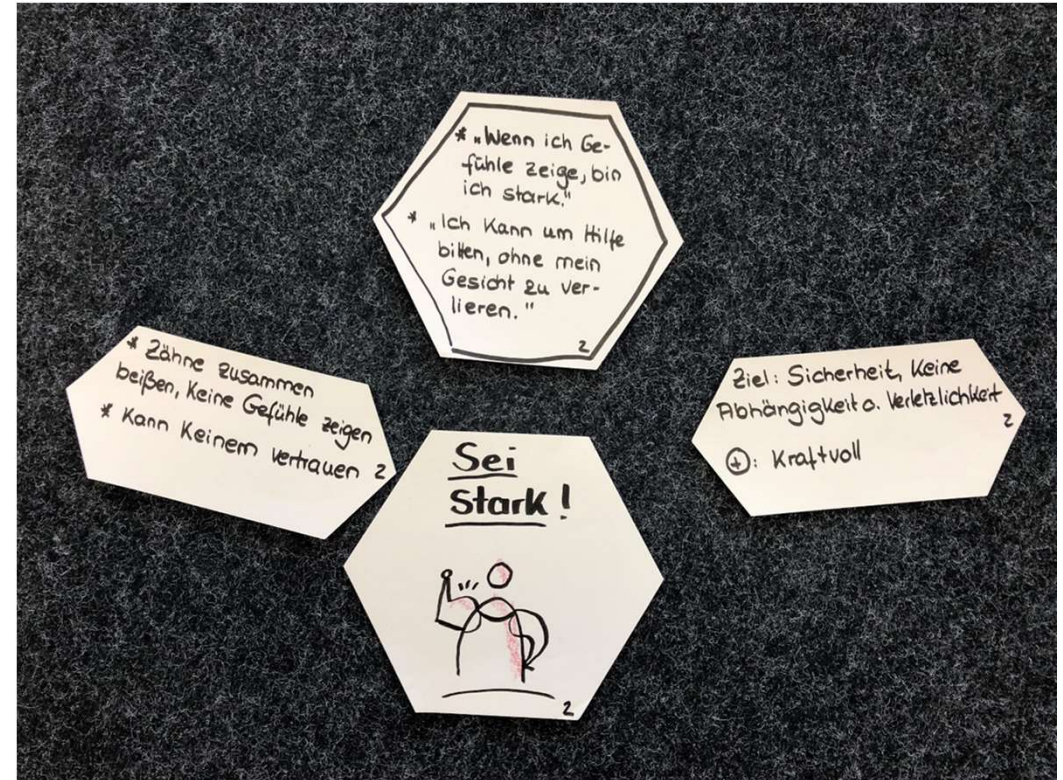 * „Wenn ich Ge-
fühle zeige, bin
ich stark."
* „Ich kann um Hilfe
bitten, ohne mein
Gesicht zu ver-
lieren."
2
* Zähne zusammen
beißen, keine Gefühle zeigen
* Kann keinem vertrauen 2
Ziel: Sicherheit, keine
Abhängigkeit o. Verletzlichkeit
2
⊕: Kraftvoll
Sei
Stark!
2